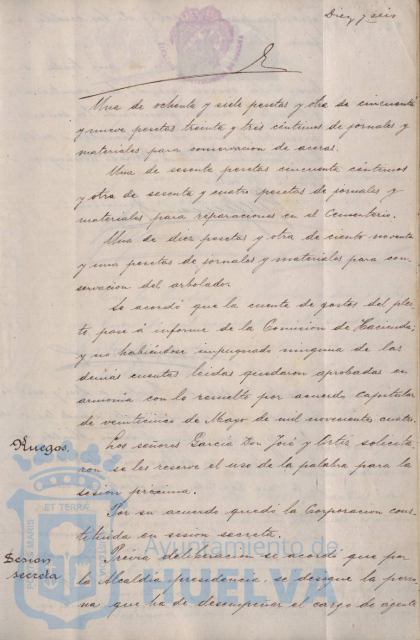 Diez y seis
Una de ochenta y siete pesetas y otra de cincuenta
y nueve pesetas treinta y tres céntimos de jornales y
materiales para conservacion de aceras.
Una de sesenta pesetas cincuenta céntimos
y otra de sesenta y cuatro pesetas de jornales y
materiales para reparaciones en el Cementerio.
Una de diez pesetas y otra de ciento noventa
y una pesetas de jornales y materiales para con-
servacion del arbolado.
Se acordó que la cuenta de gastos del plei-
to pase á informe de la Comision de Hacienda;
y no habiéndose impugnado ninguna de las
demás cuentas leidas quedaron aprobadas en
armonía con lo resuelto por acuerdo capitular
de veinticinco de Mayo de mil novecientos cuatro.
Ruegos. Los señores García Don José y Cortés solicita-
ron se les reserve el uso de la palabra para la
sesión próxima.
Por su acuerdo quedó la Corporacion cons-
tituida en sesion secreta.
Sesión secreta Prévia deliberacion se acordó que por
la Alcaldia presidencia se designe la perso-
na que ha de desempeñar el cargo de agente
PORTUS MARIS ET TERRAE CUSTODIA
Ayuntamiento de
HUELVA